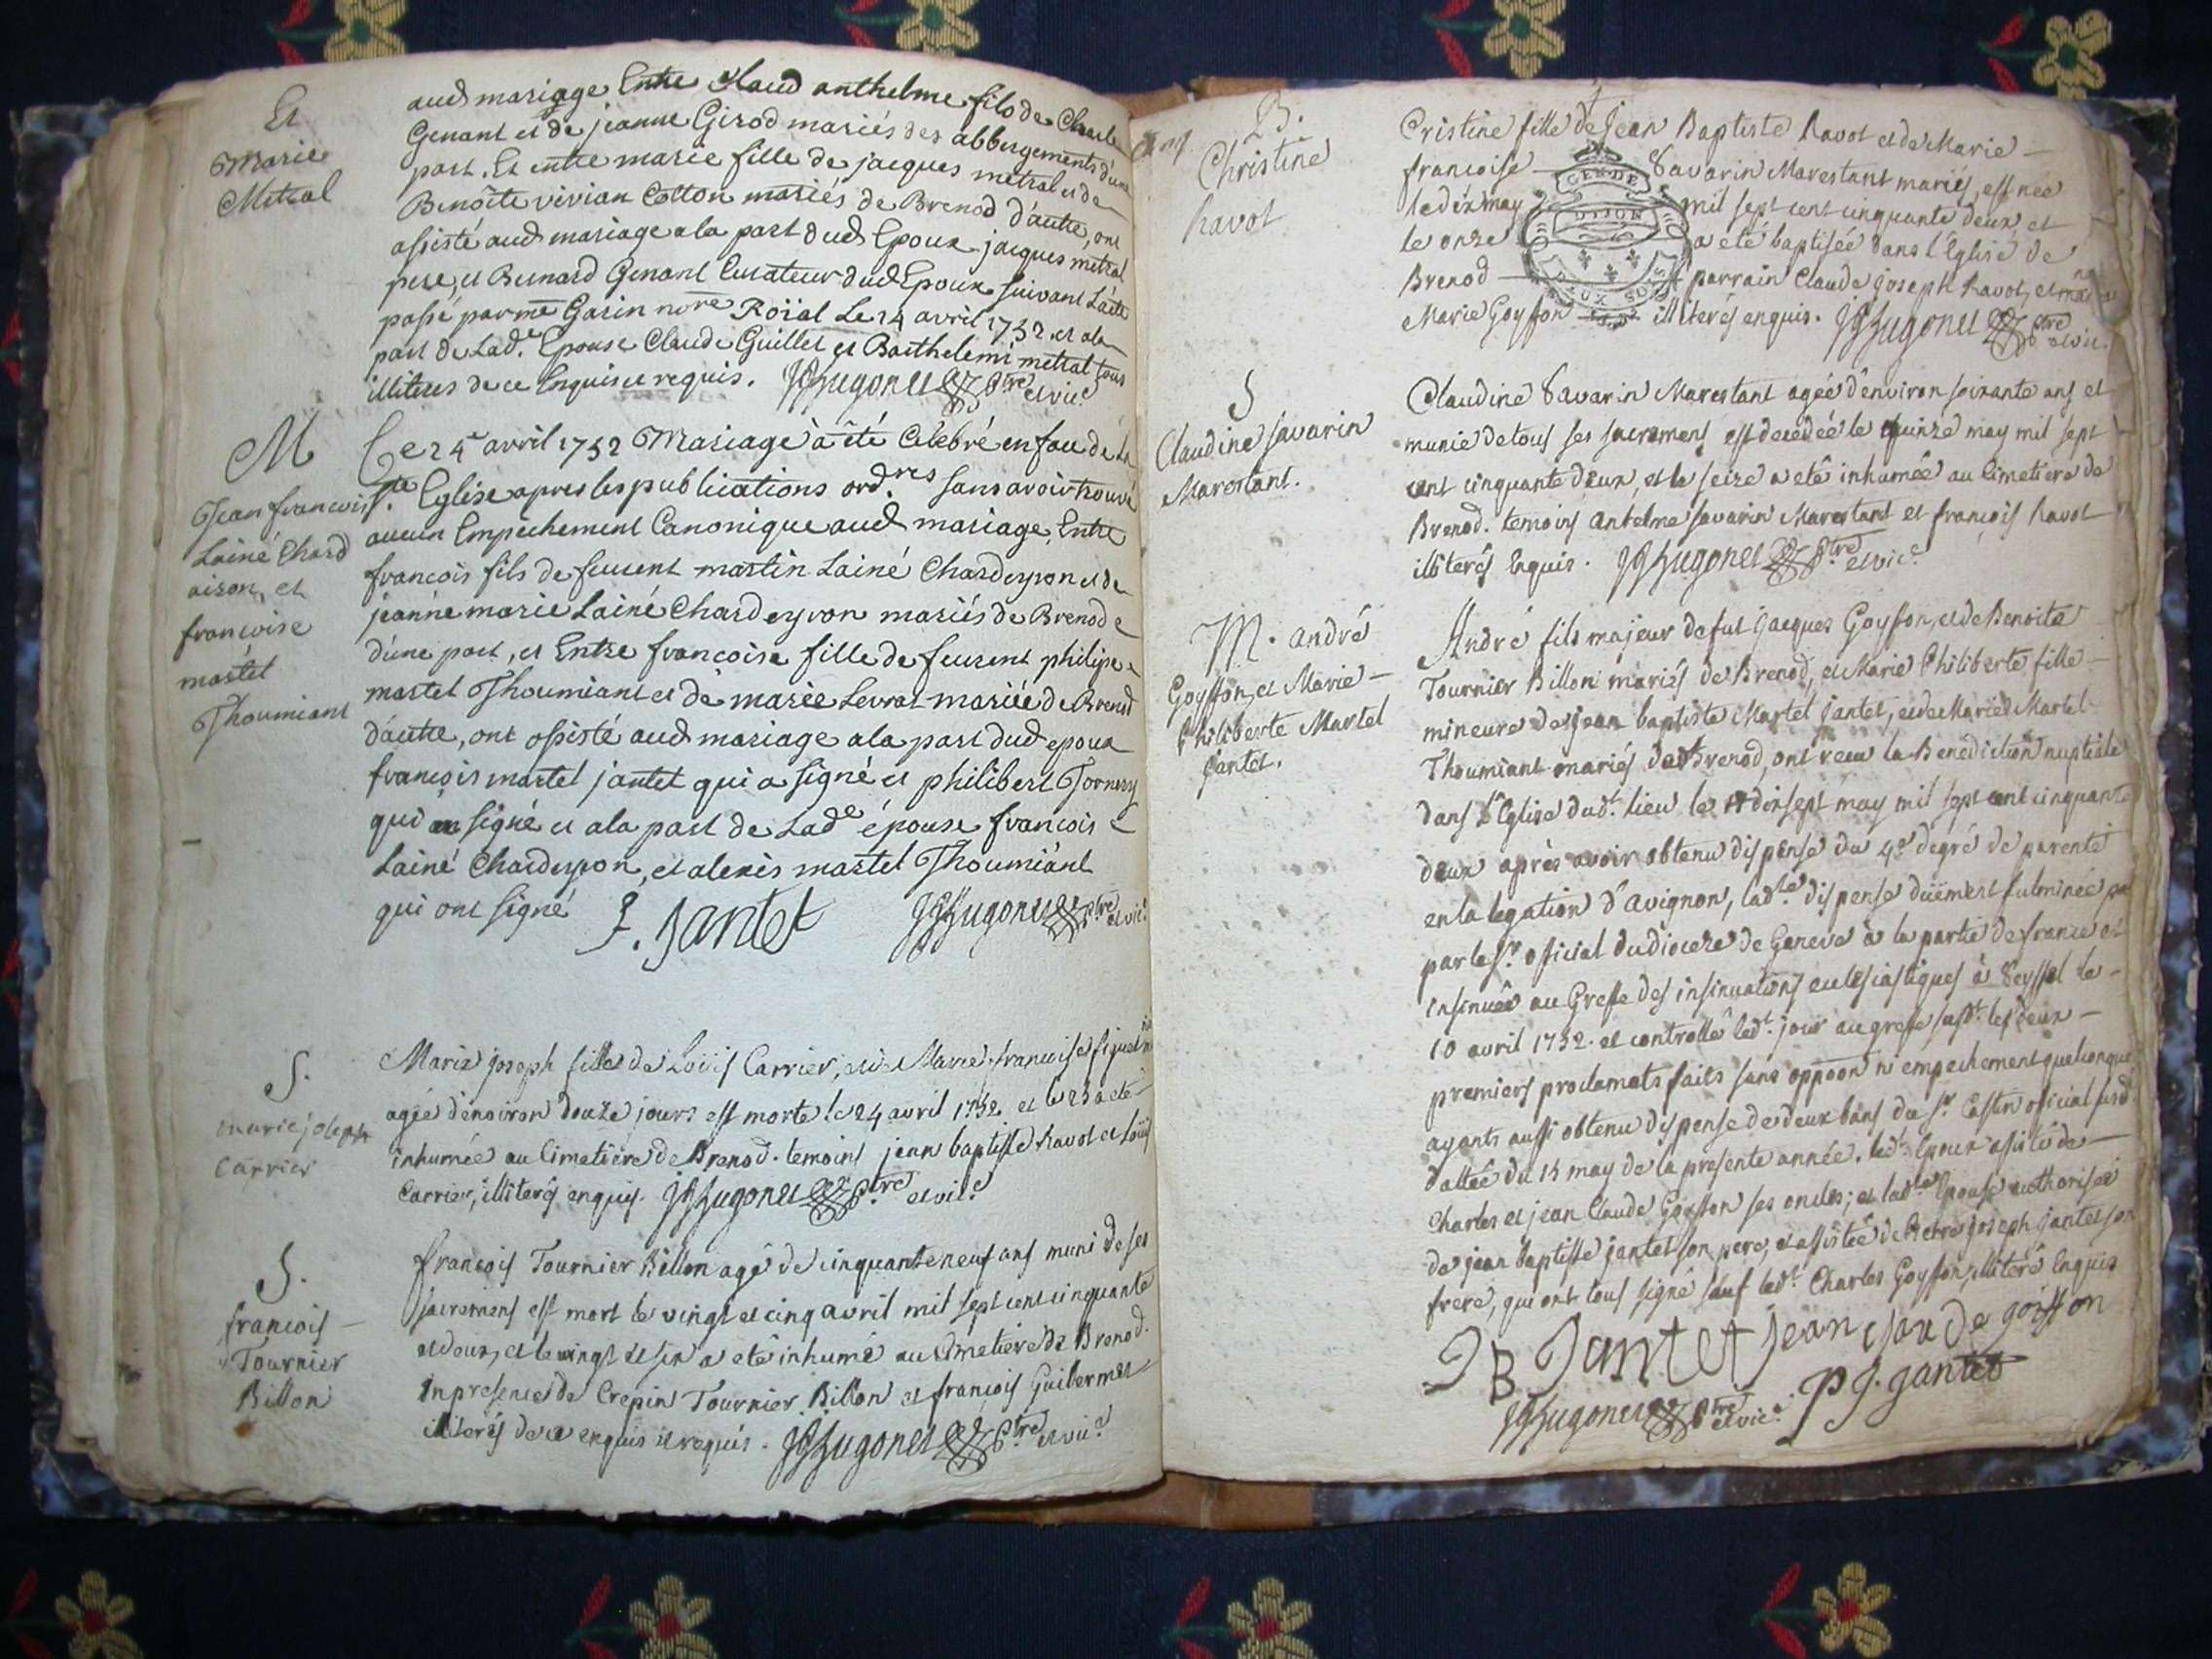 Et
Marie
Metral
aud mariage Entre Claud anthelme fils de Charle
Genant et de jeanne Girod mariés des abbergements d'une
part. Et entre marie fille de jacques metral et de
Benoîte vivian Cotton mariés de Brenod d'autre, ont
assisté aud mariage a la part dud Epoux jacques metral
pere, et Bernard Genant Curateur dud Epoux suivant L'acte
passé par me Garin nore Roïal Le 14 avril 1752 et a la
part de Lad.e Epouse Claude Guillet et Barthelemi metral tous
illiteres de ce Enquis et requis. JGHugonet Ptre et vic.e
M
Jean francois
Lainé Chard
aison, et
francoise
martel
Thoumiant
Le 24 avril 1752 Mariage à été Célébré en face de La
Ste Eglise apres les publications ord.res sans avoir trouvé
aucun Empêchement Canonique aud mariage, Entre
francois fils de feu martin Lainé Chardeyron et de
jeanne marie Lainé Chardeyron mariés de Brenod
d'une part, et Entre francoise fille de feu philipe
martel Thoumiant et de marie Levrat mariée de Brenod
d'autre, ont assisté aud mariage a la part dud epoux
francois martel jantet qui a signé et philibert
qui signé et a la part de Lade épouse francois
Lainé Chardeyron, et alexis martel Thoumiànt
qui ont signé F. jantet JGHugonet Ptre et vic.
S.
marie joseph
Carrier
Marie joseph fille de Loüis Carrier, et de Marie francoise
agée denviron douze jours est morte le 24 avril 1752 et le 25 a été
inhumée au Cimetière de Brenod. temoins jean baptiste havot et Loüis
Carrier, illiterés enquis. JGHugonet Ptre et vic.e
S.
francois
Tournier
Billon
francois Tournier Billon agé de cinquante neuf ans muni de ses
sacremens est mort le vingt et cinq avril mil sept cent cinquante
et deux, et le vingt et six a eté inhumé au Cimetiere de Brenod.
in presence de Crepin Tournier Billon et francois Guillermet
illiterés de ce enquis et requis. JGHugonet Ptre et vic.e
B.
Christine
havot
Cristine fille de jean Baptiste havot et de Marie
francoise Savarin Marestant mariés, est née
le dix may mil sept cent cinquante deux, et
le onze a eté baptisée dans l'Eglise de
Brenod parrain Claude joseph havot, et
Marie Goyffon illiterés enquis. JGHugonet Ptre et vic.
GEN DE
DIJON
DEUX SOLS
S
Claudine savarin
Marestant.
Claudine Savarin Marestant agée d'environ soixante ans et
munie de tous ses sacremens est decedée le quinze may mil sept
cent cinquante deux, et le seize a eté inhumée au Cimetiere de
Brenod. temoins antelme savarin Marestant et francois havot
illiterés Enquis. JGHugonet Ptre et vic.e
M. andré
Goyffon, et Marie
Philiberte Martel
jantet.
André fils majeur de fut jacques Goyffon, et de Benoite
Tournier Billon mariés de Brenod, et Marie Philiberte fille
mineure de jean baptiste Martel jantet, et de Marie Martel
Thoumiant mariés de Brenod, ont receu la Benediction nuptiale
dans L'Eglise dudt. lieu le dixsept may mil sept cent cinquante
deux après avoir obtenu dispense du 4e dégré de parenté
en la legation d'Avignon, ladte dispense duëment fulminée
par le Sr. official du dioceze de Geneve à la partie de france et
insinuée au Greffe des insinuations eclesiastiques à Seyssel le
10 avril 1752. et controllé ledt. jour au greffe susdt. les deux
premiers proclamats faits sans oppoon ni empechement quelconque
ayants aussi obtenu dispense de deux bans du Sr Castin official susd.
dattée du 15 may de la presente année. ledt. Epoux assisté de
Charles et jean Claude Goyffon ses oncles; et ladte Epouse authorisée
de jean baptiste jantet son pere, et assistée de Pierre joseph jantet son
frere, qui ont tous signé sauf ledt. Charles Goyffon, illiteré Enquis
JB Jantet jean claude goiffon
JGHugonet Ptre et vic.e PJ. jantet